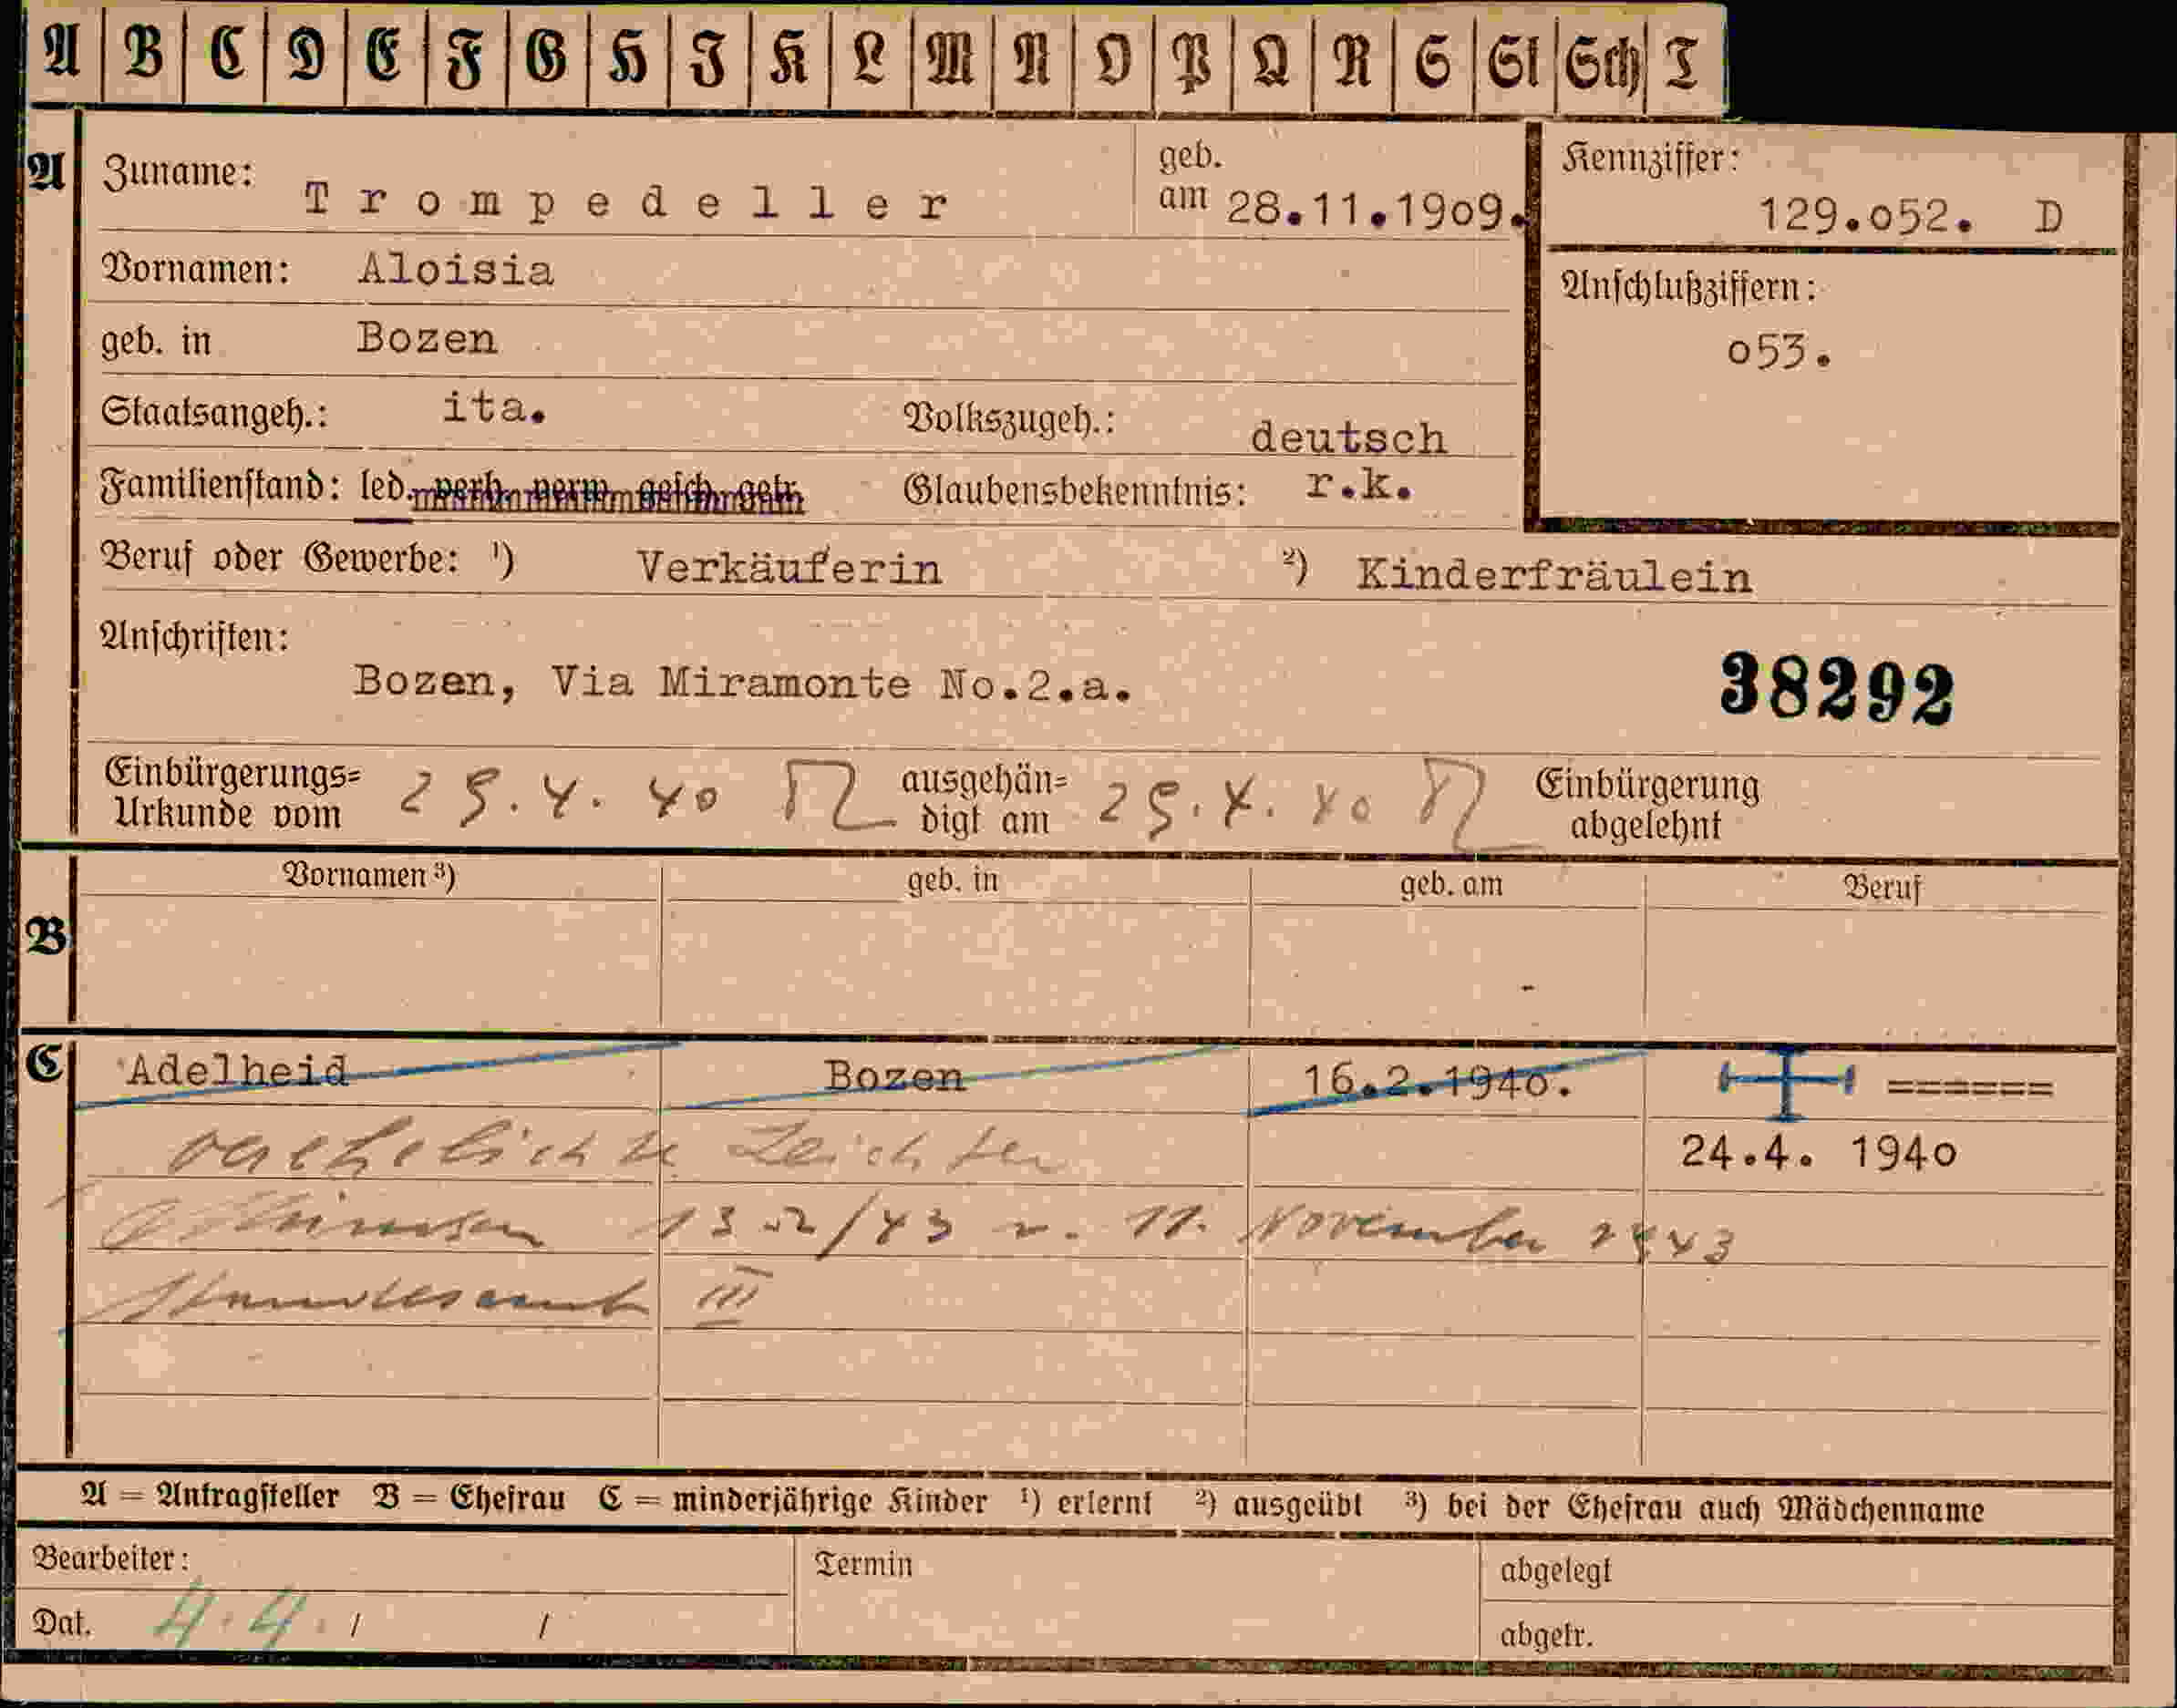 A B C D E F G H J K L M N O P Q R S St Sch T
A Zuname: Trompedeller geb. am 28.11.1909. Kennziffer: 129.o52. D
Vornamen: Aloisia Anschlußziffern:
geb. in Bozen o53.
Staatsangeh.: ita. Volkszugeh.: deutsch
Familienstand: led. verh. verw. gesch. getr. Glaubensbekenntnis: r.k.
Beruf oder Gewerbe: ¹) Verkäuferin ²) Kinderfräulein
Anschriften:
Bozen, Via Miramonte No.2.a. 38292
Einbürgerungs= ausgehän= Einbürgerung
Urkunde vom 25.4.40 digt am 25.4.40 abgelehnt
Vornamen ³) geb. in geb. am Beruf
B
C Adelheid Bozen 16.2.194o. ======
verehelichte 24.4. 194o
13 /43 v. 11. November 1943
Standesamt III
A = Antragsteller B = Ehefrau C = minderjährige Kinder ¹) erlernt ²) ausgeübt ³) bei der Ehefrau auch Mädchenname
Bearbeiter: Termin abgelegt
Dat. 4.4. / / abgetr.